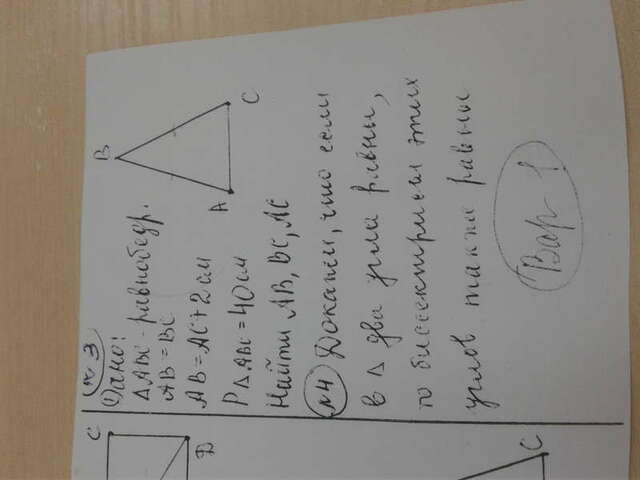 C
D
C
№3
Дано:
△ABC - равнобедр.
AB = BC
AB = AC + 2 см
P△ABC = 40 см
Найти AB, BC, AC
B
A
C
№4 Докажи, что если
в △ два угла равны,
то биссектрисы этих
углов также равны
Вар 1